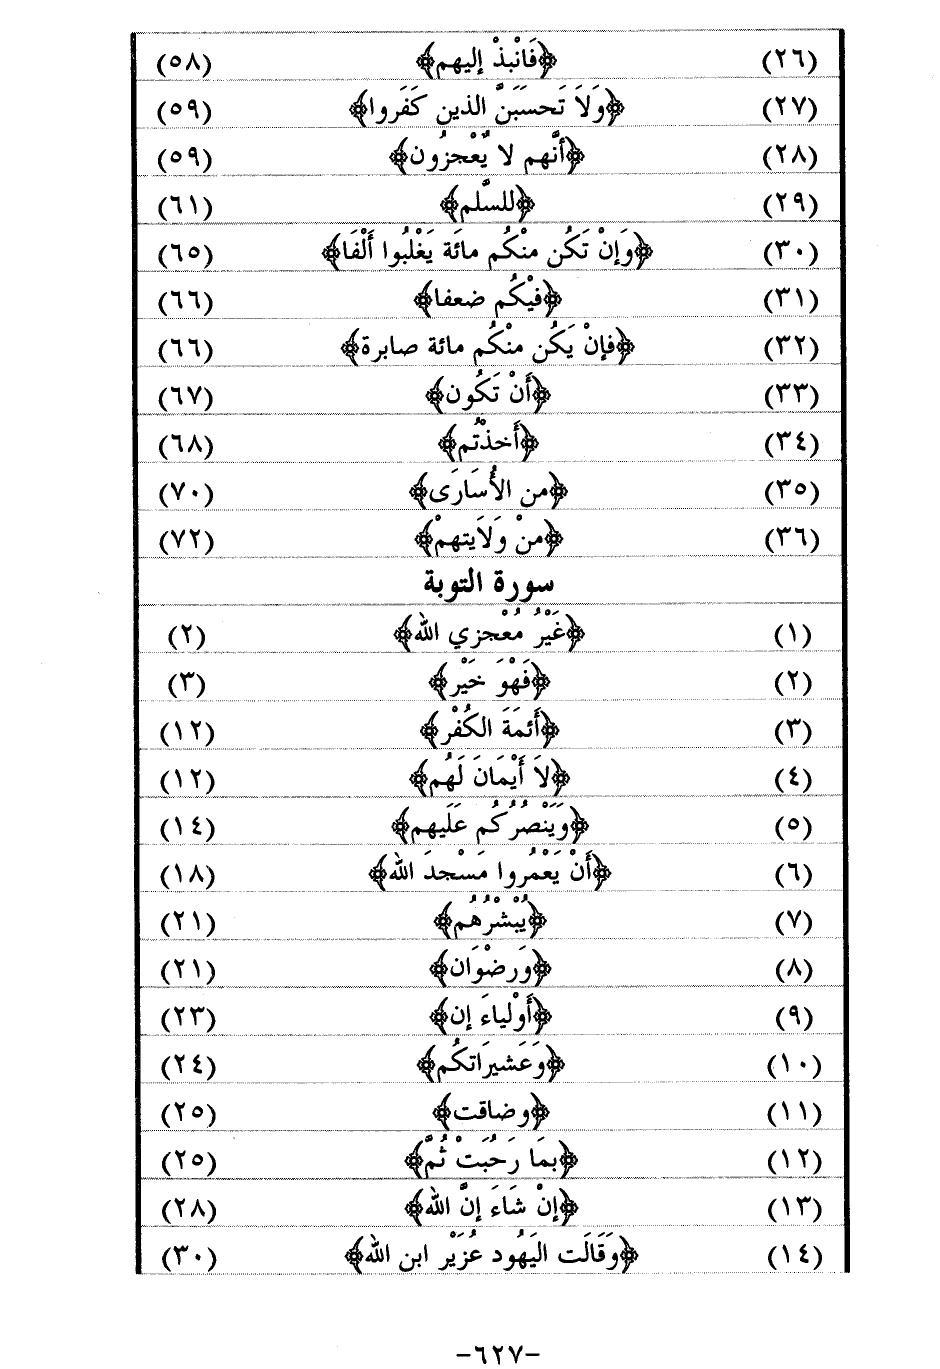 (٢٦) ﴿فَانْبذْ إليهم﴾ (٥٨)
(٢٧) ﴿وَلاَ تَحسَبَنَّ الذين كَفَروا﴾ (٥٩)
(٢٨) ﴿أنَّهم لا يُعْجزُون﴾ (٥٩)
(٢٩) ﴿للسَّلم﴾ (٦١)
(٣٠) ﴿وَإنْ تَكُن منْكُم مائَة يَغْلبُوا أَلْفَا﴾ (٦٥)
(٣١) ﴿فيْكُم ضعفا﴾ (٦٦)
(٣٢) ﴿فإنْ يَكُن منْكُم مائة صابرة﴾ (٦٦)
(٣٣) ﴿أَنْ تَكُون﴾ (٦٧)
(٣٤) ﴿أَخذْتُم﴾ (٦٨)
(٣٥) ﴿من الأُسَارَى﴾ (٧٠)
(٣٦) ﴿منْ وَلاَيتهمْ﴾ (٧٢)
سورة التوبة
(١) ﴿غَيْرُ مُعْجزي الله﴾ (٢)
(٢) ﴿فَهْوَ خَيْر﴾ (٣)
(٣) ﴿أَئمَةَ الكُفْر﴾ (١٢)
(٤) ﴿لاَ أَيْمَانَ لَهُم﴾ (١٢)
(٥) ﴿وَيَنْصُرُكُم عَلَيهم﴾ (١٤)
(٦) ﴿أَنْ يَعْمُروا مَسْجدَ الله﴾ (١٨)
(٧) ﴿يُبْشْرُهُم﴾ (٢١)
(٨) ﴿وَرضْوَان﴾ (٢١)
(٩) ﴿أَوْلياءَ إن﴾ (٢٣)
(١٠) ﴿وَعَشيرَاتكُم﴾ (٢٤)
(١١) ﴿وضاقت﴾ (٢٥)
(١٢) ﴿بمَا رَحُبَتْ ثُمَّ﴾ (٢٥)
(١٣) ﴿إنْ شَاءَ إنَّ الله﴾ (٢٨)
(١٤) ﴿وَقَالَت اليَهُود عُزَيْر ابن الله﴾ (٣٠)
-٦٢٧-